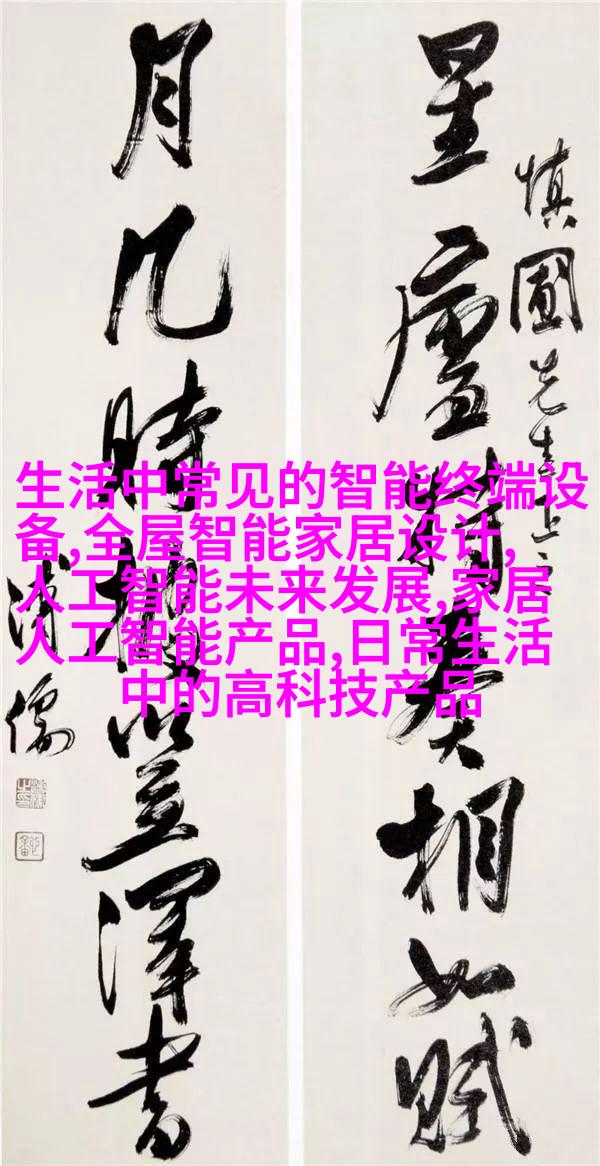 生活中常见的智能终端设
备,全屋智能家居设计,
人工智能未来发展,家居
人工智能产品,日常生活
中的高科技产品
慎圃先生
星廬 奏相如賦
月几時 澤書
溥儒